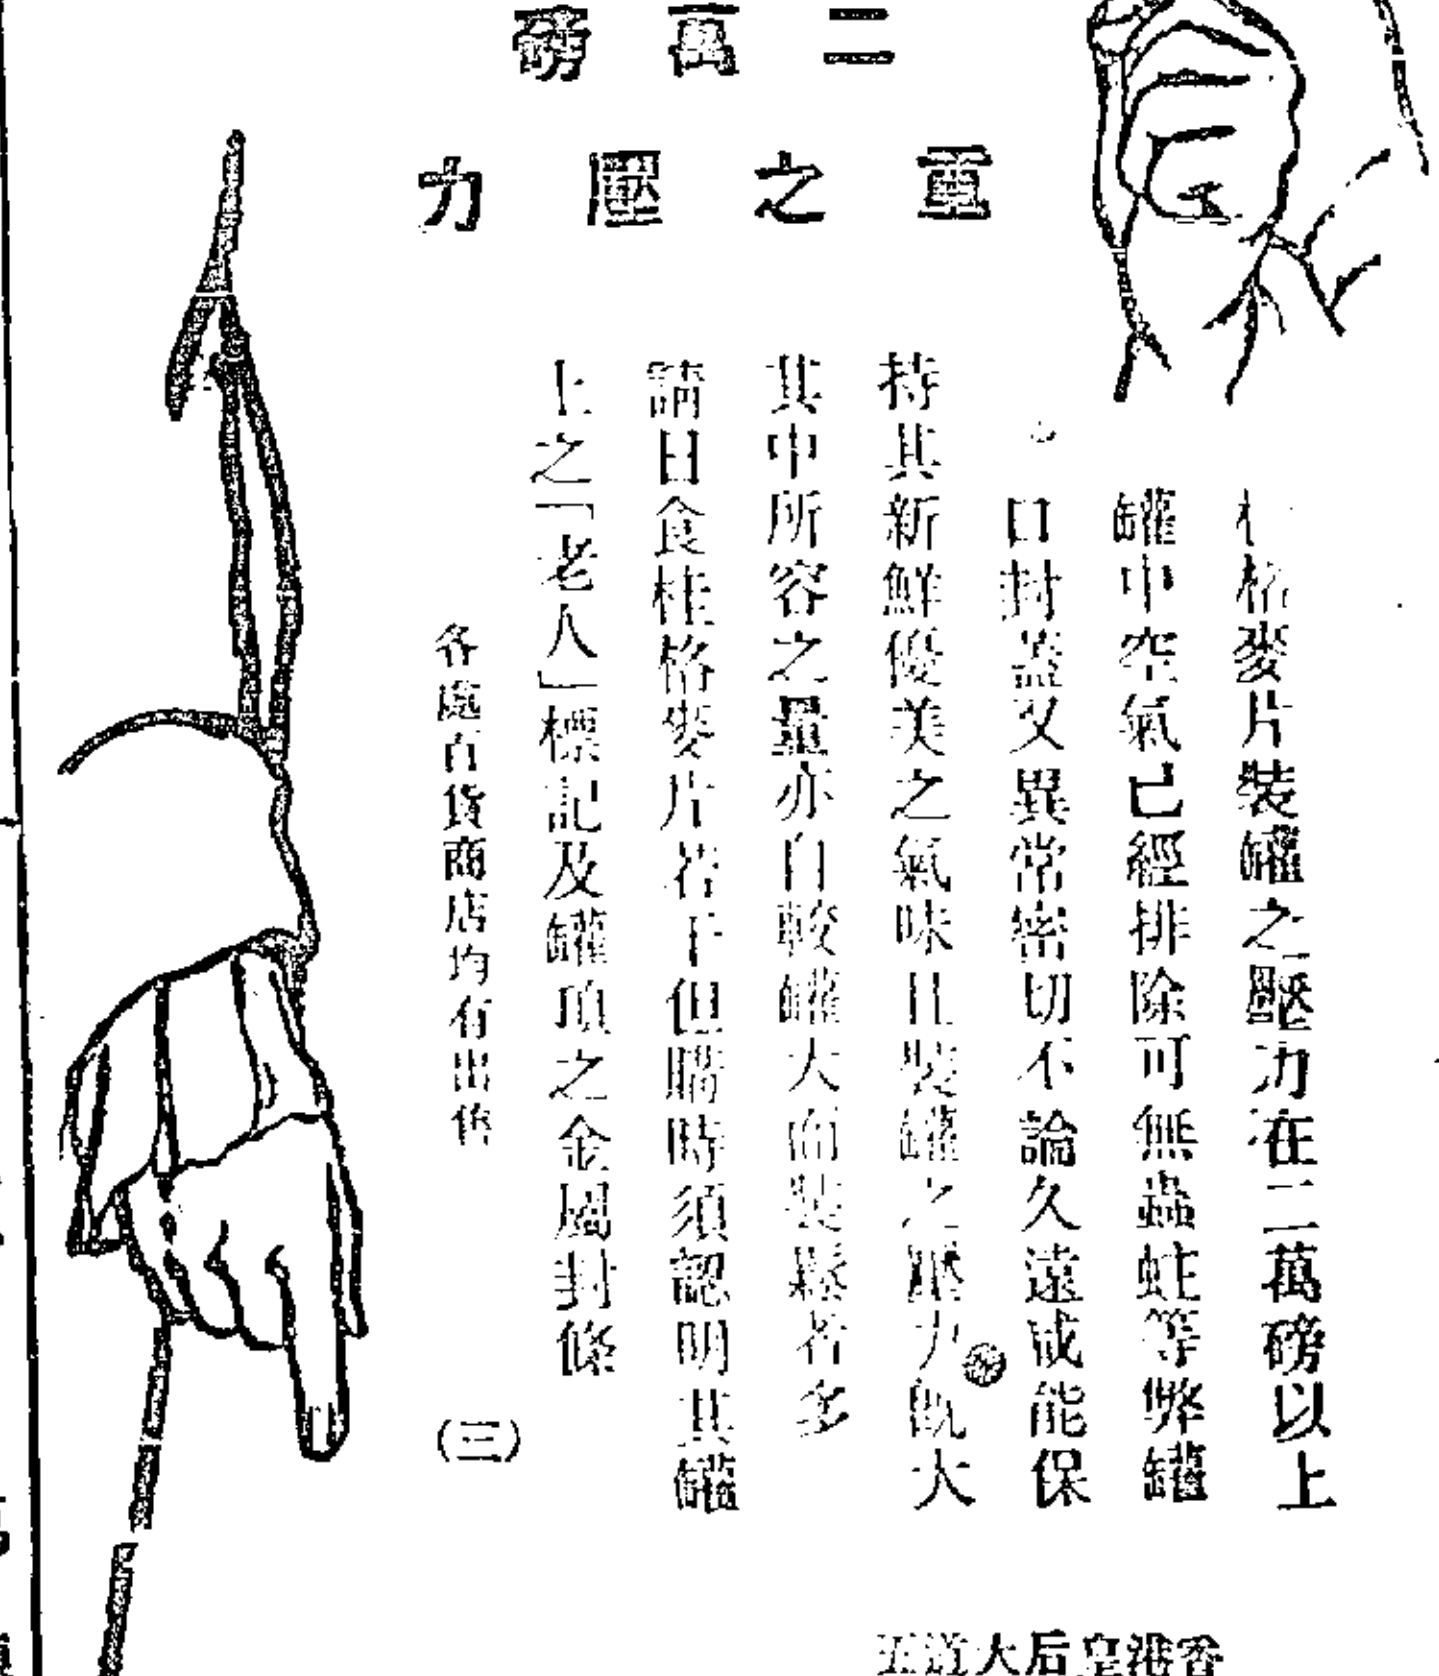 二萬磅
重之壓力
桂格麥片裝罐之壓力在二萬磅以上
罐中空氣已經排除可無蟲蛀等弊罐
口封蓋又異常密切不論久遠或能保
持其新鮮優美之氣味且裝罐之壓力既大
其中所容之量亦自較罐大而裝鬆者多
請日食桂格麥片若干但購時須認明其罐
上之「老人」標記及罐頂之金屬封條
各處百貨商店均有出售
(三)
香港皇后大道五